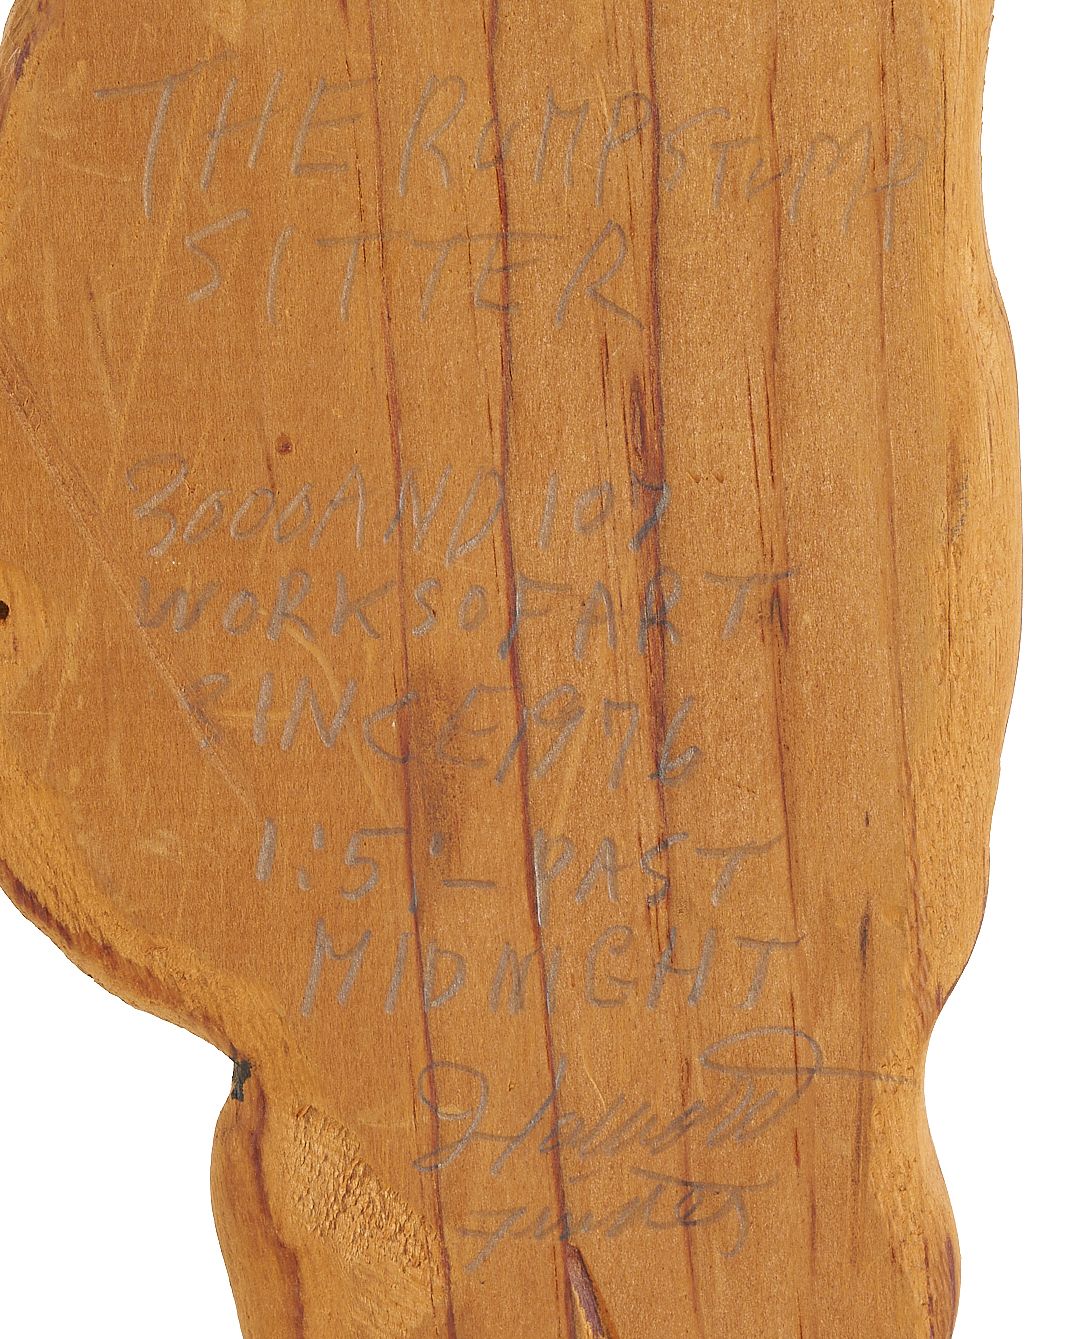 THE RUMPSTUMP
SITTER
3000AND 107
WORKSOFART
SINCE1976
1:5:- PAST
MIDNIGHT
Howard
Finster